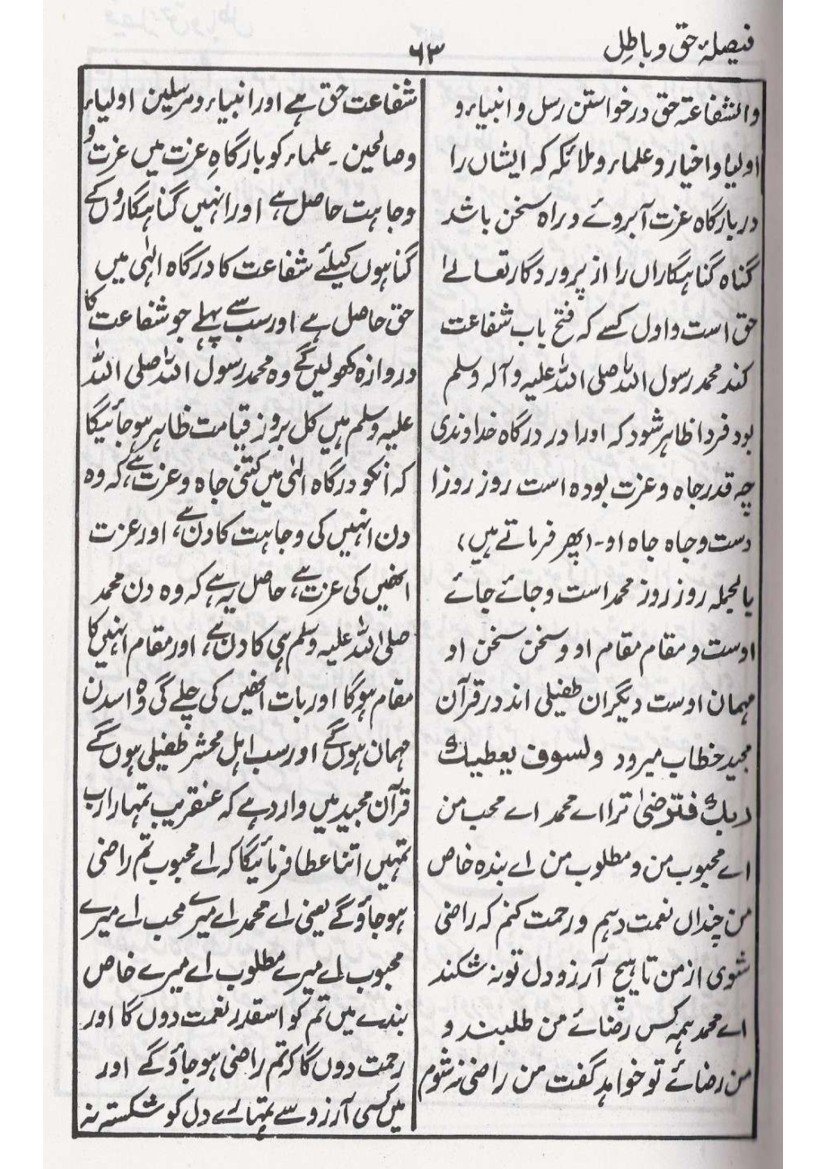 فیصلۂ حق و باطل
۶۳
والشفاعۃ حق درخواستن رسل و انبیاء و
اولیا و اخیار و علماء و ملائکہ کہ ایشاں را
در بارگاہ عزت آبروئے و راہ سخن باشد
گناہ گناہگاراں را از پروردگار تعالےٰ
حق است و اول کسے کہ فتح باب شفاعت
کند محمد رسول اللہ باشد صلی اللہ علیہ وآلہ وسلم
بود فردا ظاہر شود کہ اورا در درگاہ خداوندی
چہ قدر جاہ و عزت بودہ است روز روز ا
دست و جاہ جاہ او۔ (پھر فرماتے ہیں)
بالجملہ روز روز محمد است و جائے جائے
اوست و مقام مقام او و سخن سخن او
مہمان اوست دیگران طفیلی اند در قرآن
مجید خطاب میرود ولسوف یعطیک
ربک فترضیٰ ترا اے محمد اے محب من
اے محبوب من و مطلوب من اے بندہ خاص
من چنداں نعمت دہم و رحمت کنم کہ راضی
شوی از من تا ہیچ آرزو دل تو نہ شکند
اے محمد ہمہ کس رضائے من طلبند و
من رضائے تو خواہد گفت من راضی نہ شوم
شفاعت حق ہے اور انبیاء و مرسلین اولیاء
و صالحین۔ علماء کو بارگاہِ عزت میں عزت و
وجاہت حاصل ہے اور انہیں گناہگاروں کے
گناہوں کیلئے شفاعت کا درگاہ الٰہی میں
حق حاصل ہے اور سب سے پہلے جو شفاعت کا
دروازہ کھولیں گے وہ محمد رسول اللہ صلی اللہ
علیہ وسلم ہیں کل بروز قیامت ظاہر ہو جائیگا
کہ انکو درگاہ الٰہی میں کتنی جاہ و عزت ہے، کہ وہ
دن انہیں کی وجاہت کا دن ہے، اور عزت
انھیں کی عزت ہے، حاصل یہ ہے کہ وہ دن محمد
صلی اللہ علیہ وسلم ہی کا دن ہے، اور مقام انہیں کا
مقام ہوگا اور بات انھیں کی چلے گی وہ اسدن
مہمان ہوں گے اور سب اہل محشر طفیلی ہوں گے
قرآن مجید میں وارد ہے کہ عنقریب تمہارا رب
تمہیں اتنا عطا فرمائیگا کہ اے محبوب تم راضی
ہو جاؤ گے یعنی اے محمد اے میرے محب اے میرے
محبوب اے میرے مطلوب اے میرے خاص
بندے میں تم کو اسقدر نعمت دوں گا اور
رحمت دوں گا کہ تم راضی ہو جاؤ گے اور
میں کسی آرزو سے تمہارے دل کو شکستہ نہ